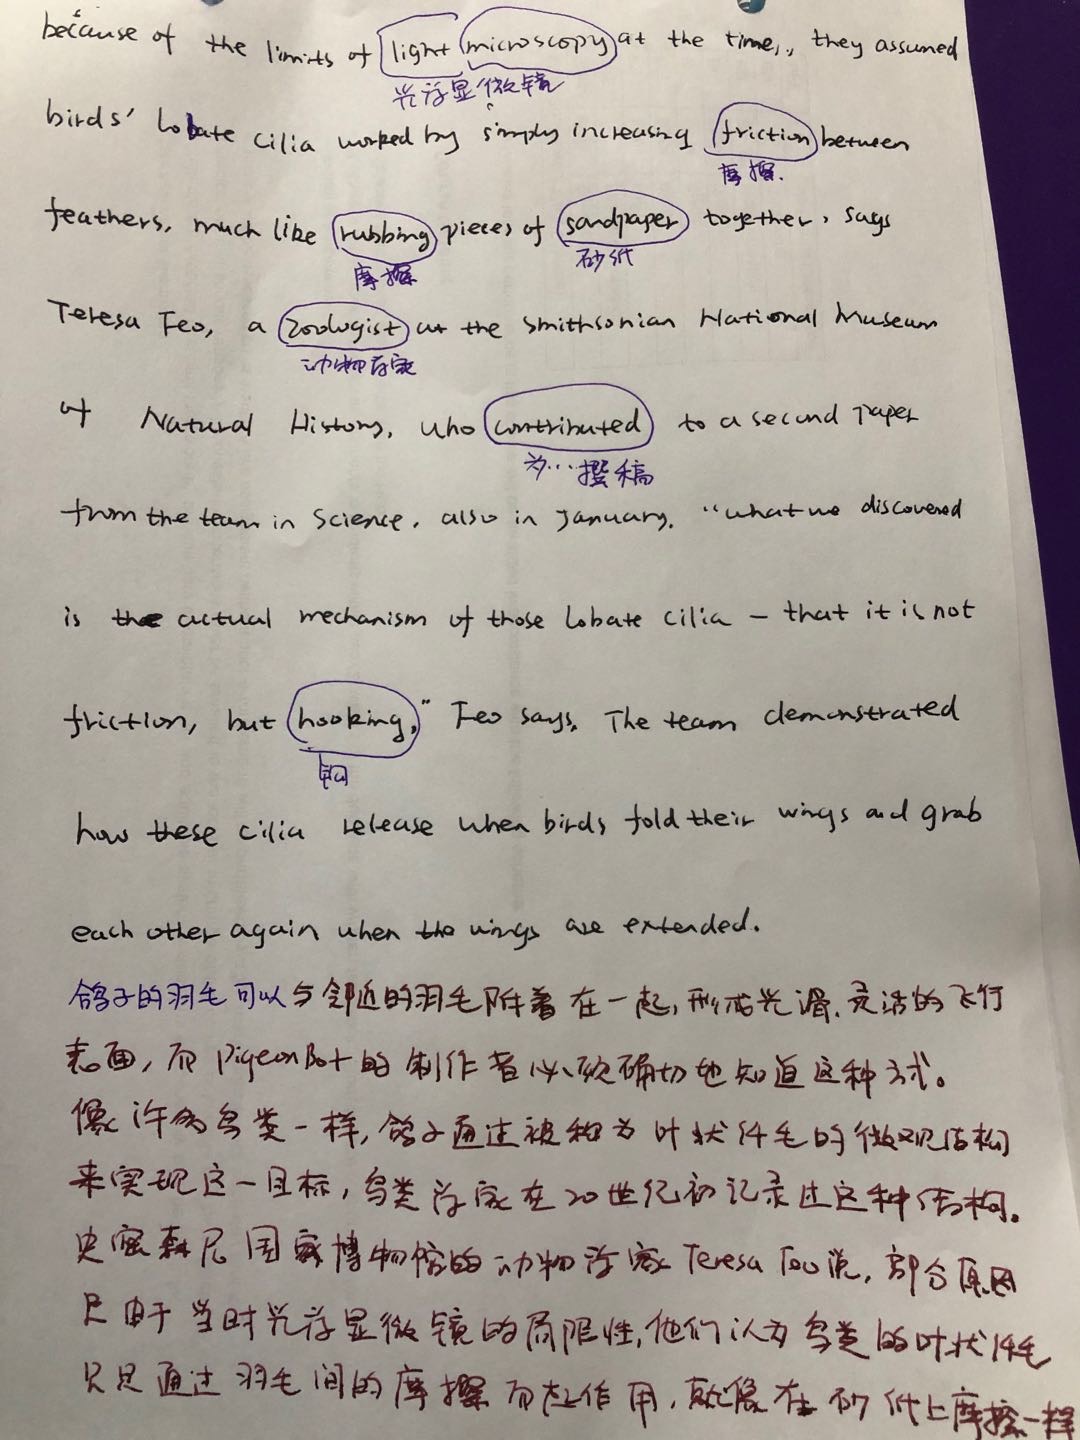 because of the limits of light microscopy at the time,, they assumed
光学显微镜
birds' lobate cilia worked by simply increasing friction between
摩擦.
feathers, much like rubbing pieces of sandpaper together, says
摩擦 砂纸
Teresa Feo, a zoologist at the Smithsonian National Museum
动物学家
of Natural History, who contributed to a second paper
为…撰稿
from the team in Science, also in January. "what we discovered
is the actual mechanism of those lobate cilia — that it is not
friction, but hooking," Feo says. The team demonstrated
钩
how these cilia release when birds fold their wings and grab
each other again when the wings are extended.
鸽子的羽毛可以与邻近的羽毛附着在一起,形成光滑、灵活的飞行
表面,而PigeonBot的制作者必须确切地知道这种方式。
像许多鸟类一样,鸽子通过被称为叶状纤毛的微观结构
来实现这一目标,鸟类学家在20世纪初记录过这种结构。
史密森尼国家博物馆的动物学家Teresa Feo说,部分原因
是由于当时光学显微镜的局限性,他们认为鸟类的叶状纤毛
只是通过羽毛间的摩擦而起作用,就像在砂纸上摩擦一样